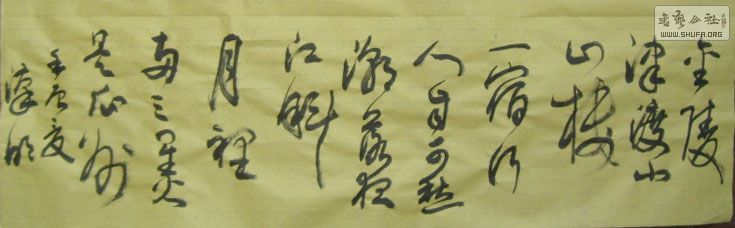 金陵
津渡小
山楼
一宿行
人自可愁
潮落夜
江斜
月裡
两三星火
是瓜州
夏
書藝公社
WWW.SHUFA.ORG